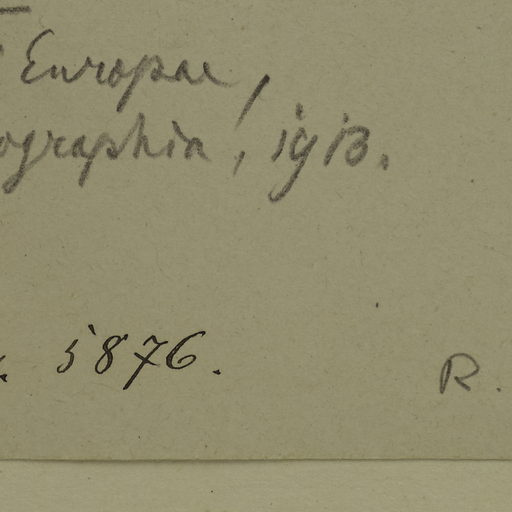 Europae,
ographia, 1913.
5876.
R.